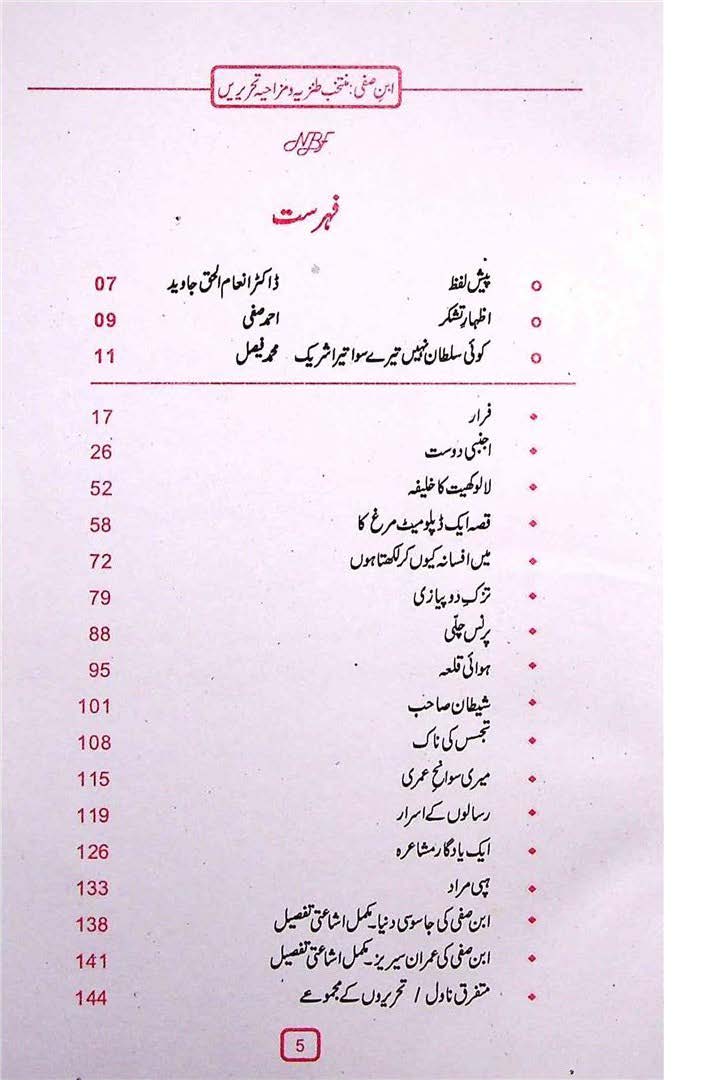 ابنِ صفی: منتخب طنزیہ و مزاحیہ تحریریں
NBF
فہرست
پیش لفظ ڈاکٹر انعام الحق جاوید 07
اظہارِ تشکر احمد صفی 09
کوئی سلطان نہیں تیرے سوا تیرا شریک محمد فیصل 11
فرار 17
اجنبی دوست 26
لالوکھیت کا خلیفہ 52
قصہ ایک ڈپلومیٹ مرغ کا 58
میں افسانہ کیوں کر لکھتا ہوں 72
تزکِ دو پیازی 79
پرنس چلّی 88
ہوائی قلعہ 95
شیطان صاحب 101
تجسس کی ناک 108
میری سوانح عمری 115
رسالوں کے اسرار 119
ایک یادگار مشاعرہ 126
ہپی مراد 133
ابن صفی کی جاسوسی دنیا۔ مکمل اشاعتی تفصیل 138
ابن صفی کی عمران سیریز۔ مکمل اشاعتی تفصیل 141
متفرق ناول / تحریروں کے مجموعے 144
5